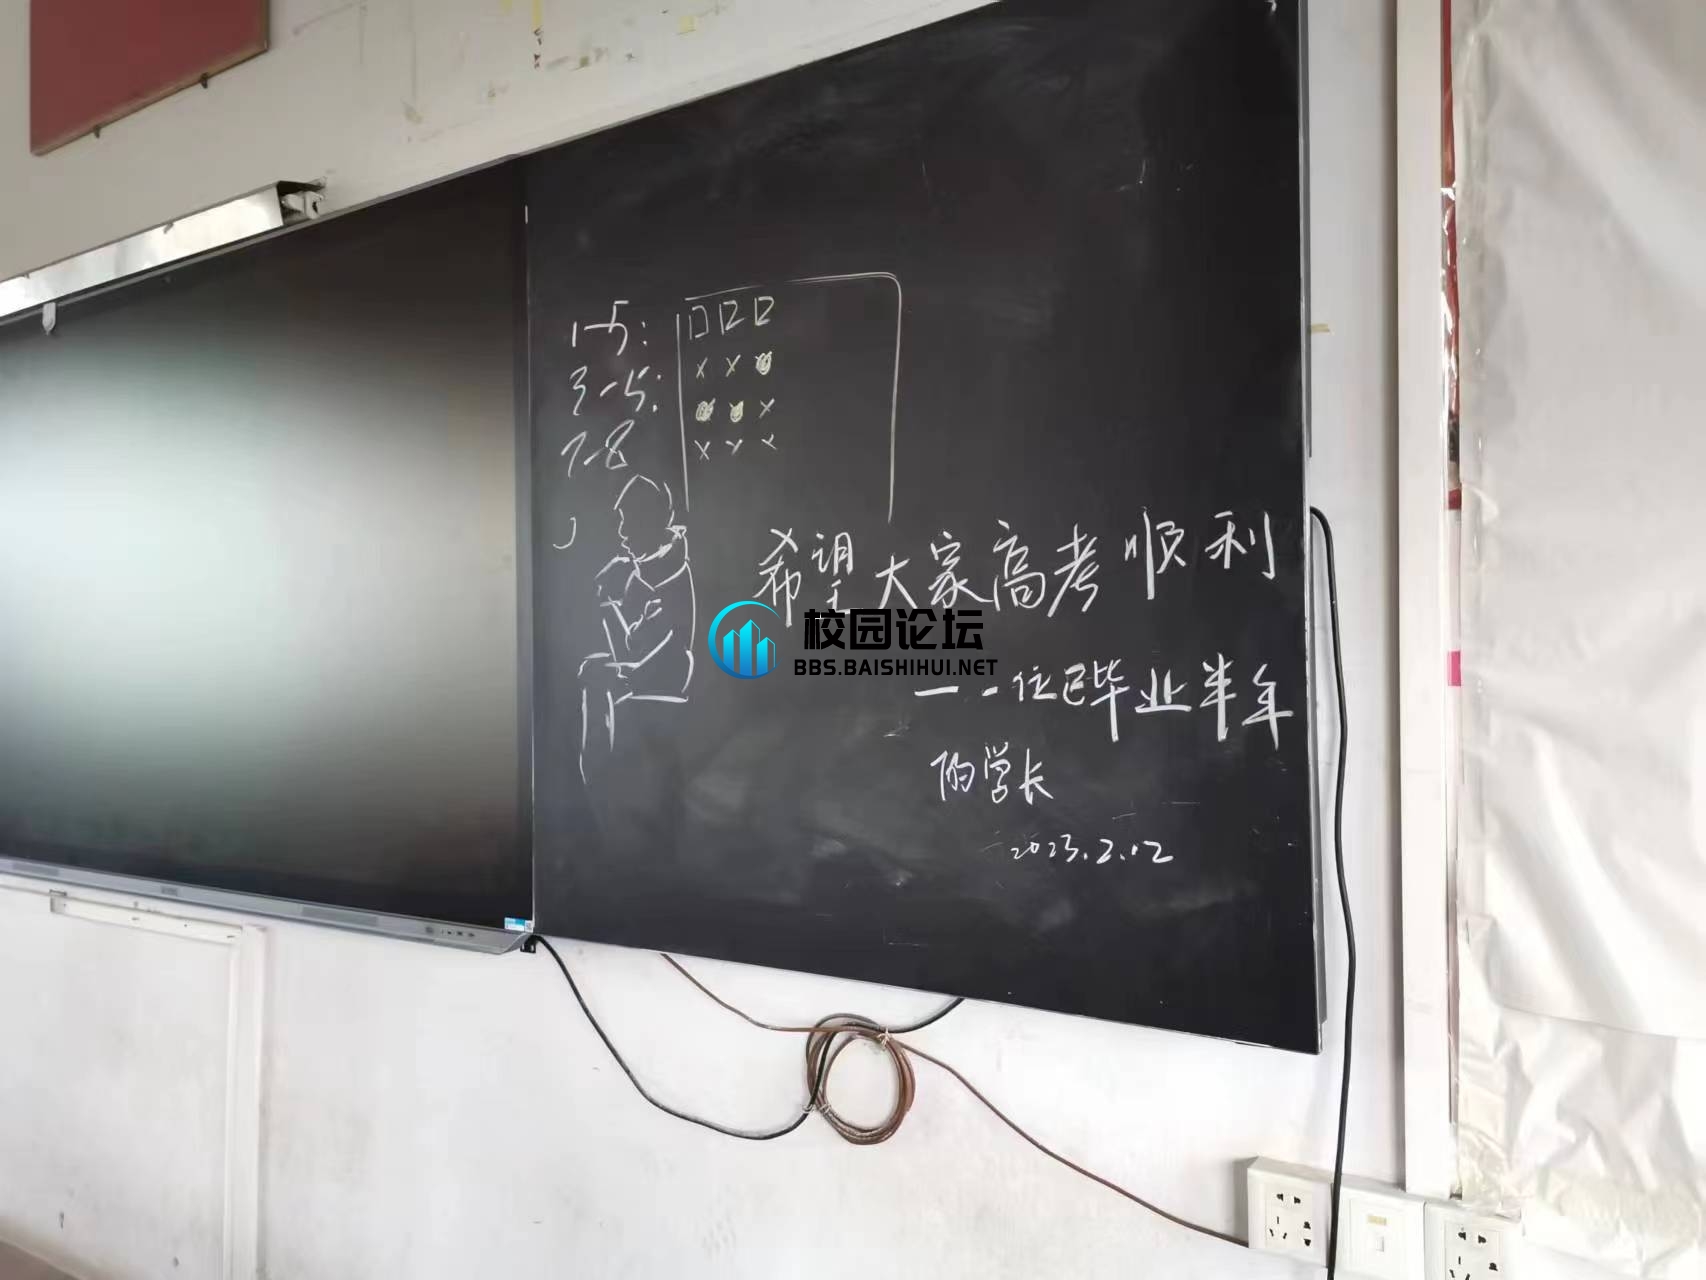 1-5:
3-5:
7-8
希望大家高考顺利
——一位已毕业半年
的学长
2023.2.12
校园论坛
BBS.BAISHIHUI.NET